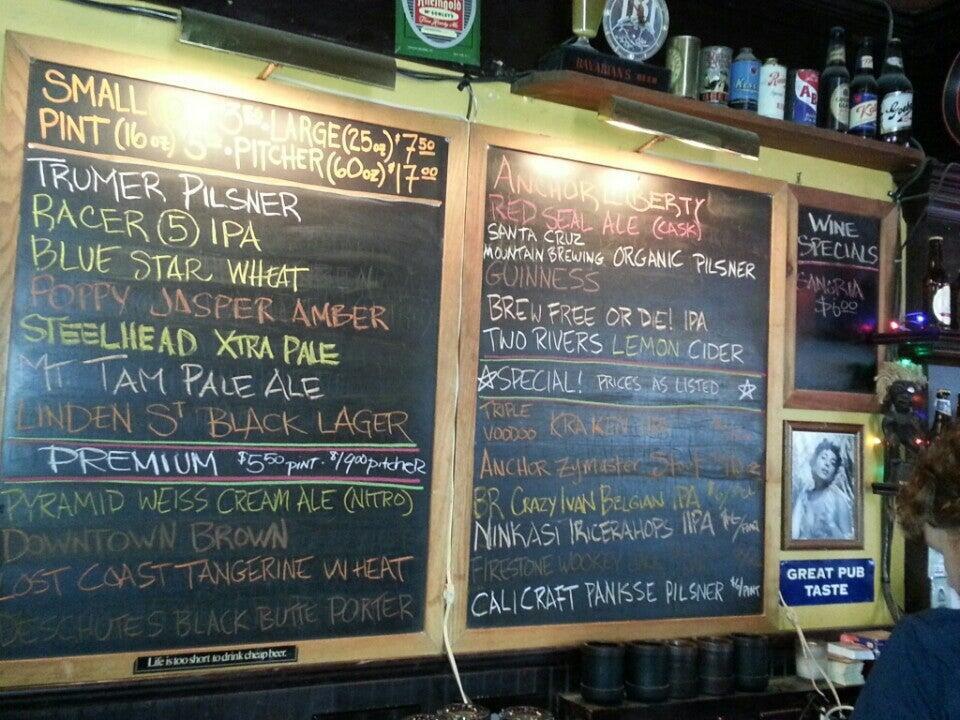 Rheingold
BAVARIAN'S BEER
SMALL LARGE (25oz) $7.50
PINT (16oz) PITCHER (60oz) $17.00
TRUMER PILSNER
RACER 5 IPA
BLUE STAR WHEAT
POPPY JASPER AMBER
STEELHEAD XTRA PALE
MT TAM PALE ALE
LINDEN ST BLACK LAGER
PREMIUM $5.50 PINT · $19.00 pitcher
PYRAMID WEISS CREAM ALE (NITRO)
DOWNTOWN BROWN
LOST COAST TANGERINE WHEAT
DESCHUTES BLACK BUTTE PORTER
Life is too short to drink cheap beer.
ANCHOR LIBERTY
RED SEAL ALE (CASK)
SANTA CRUZ
MOUNTAIN BREWING ORGANIC PILSNER
GUINNESS
BREW FREE OR DIE! IPA
TWO RIVERS LEMON CIDER
SPECIAL! PRICES AS LISTED
TRIPLE
VOODOO KRAKEN
ANCHOR ZYMASTER
BR CRAZY IVAN BELGIAN IPA
NINKASI TRICERAHOPS IIPA $6/PINT
FIRESTONE WOOKEY
CALICRAFT PANISSE PILSNER $6/PINT
WINE
SPECIALS
SANGRIA
$6.00
GREAT PUB
TASTE